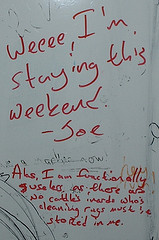 Weeee! I'm
staying this
weekend
-Joe
Also, I am functionally
useless as there are
no cattle inards who's
cleaning rugs must be
stored in me.